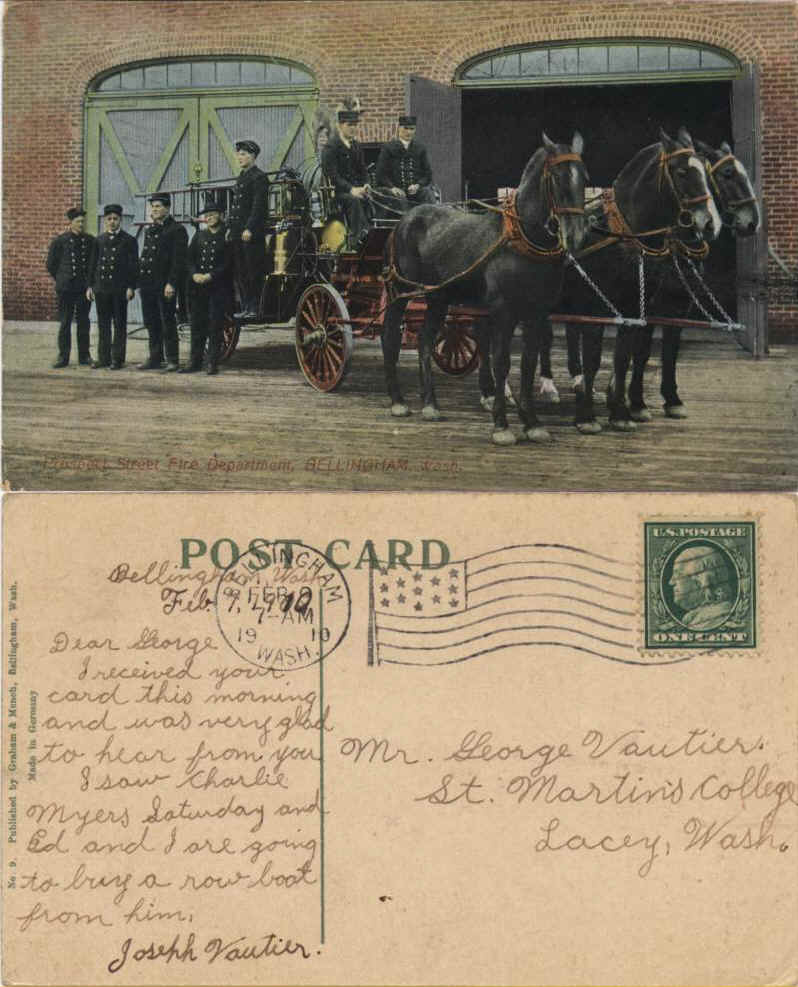 Prospect Street Fire Department, BELLINGHAM, Wash.
POST CARD
U.S. POSTAGE
ONE CENT
BELLINGHAM
FEB 8
7-AM
19 10
WASH.
Bellingham, Wash.
Feb. 7, 1910,
Dear George
I received your
card this morning
and was very glad
to hear from you
I saw Charlie
Myers Saturday and
Ed and I are going
to buy a row boat
from him.
Joseph Vautier.
Mr. George Vautier.
St. Martin's College
Lacey, Wash.
No 9. Published by Graham & Munch, Bellingham, Wash.
Made in Germany